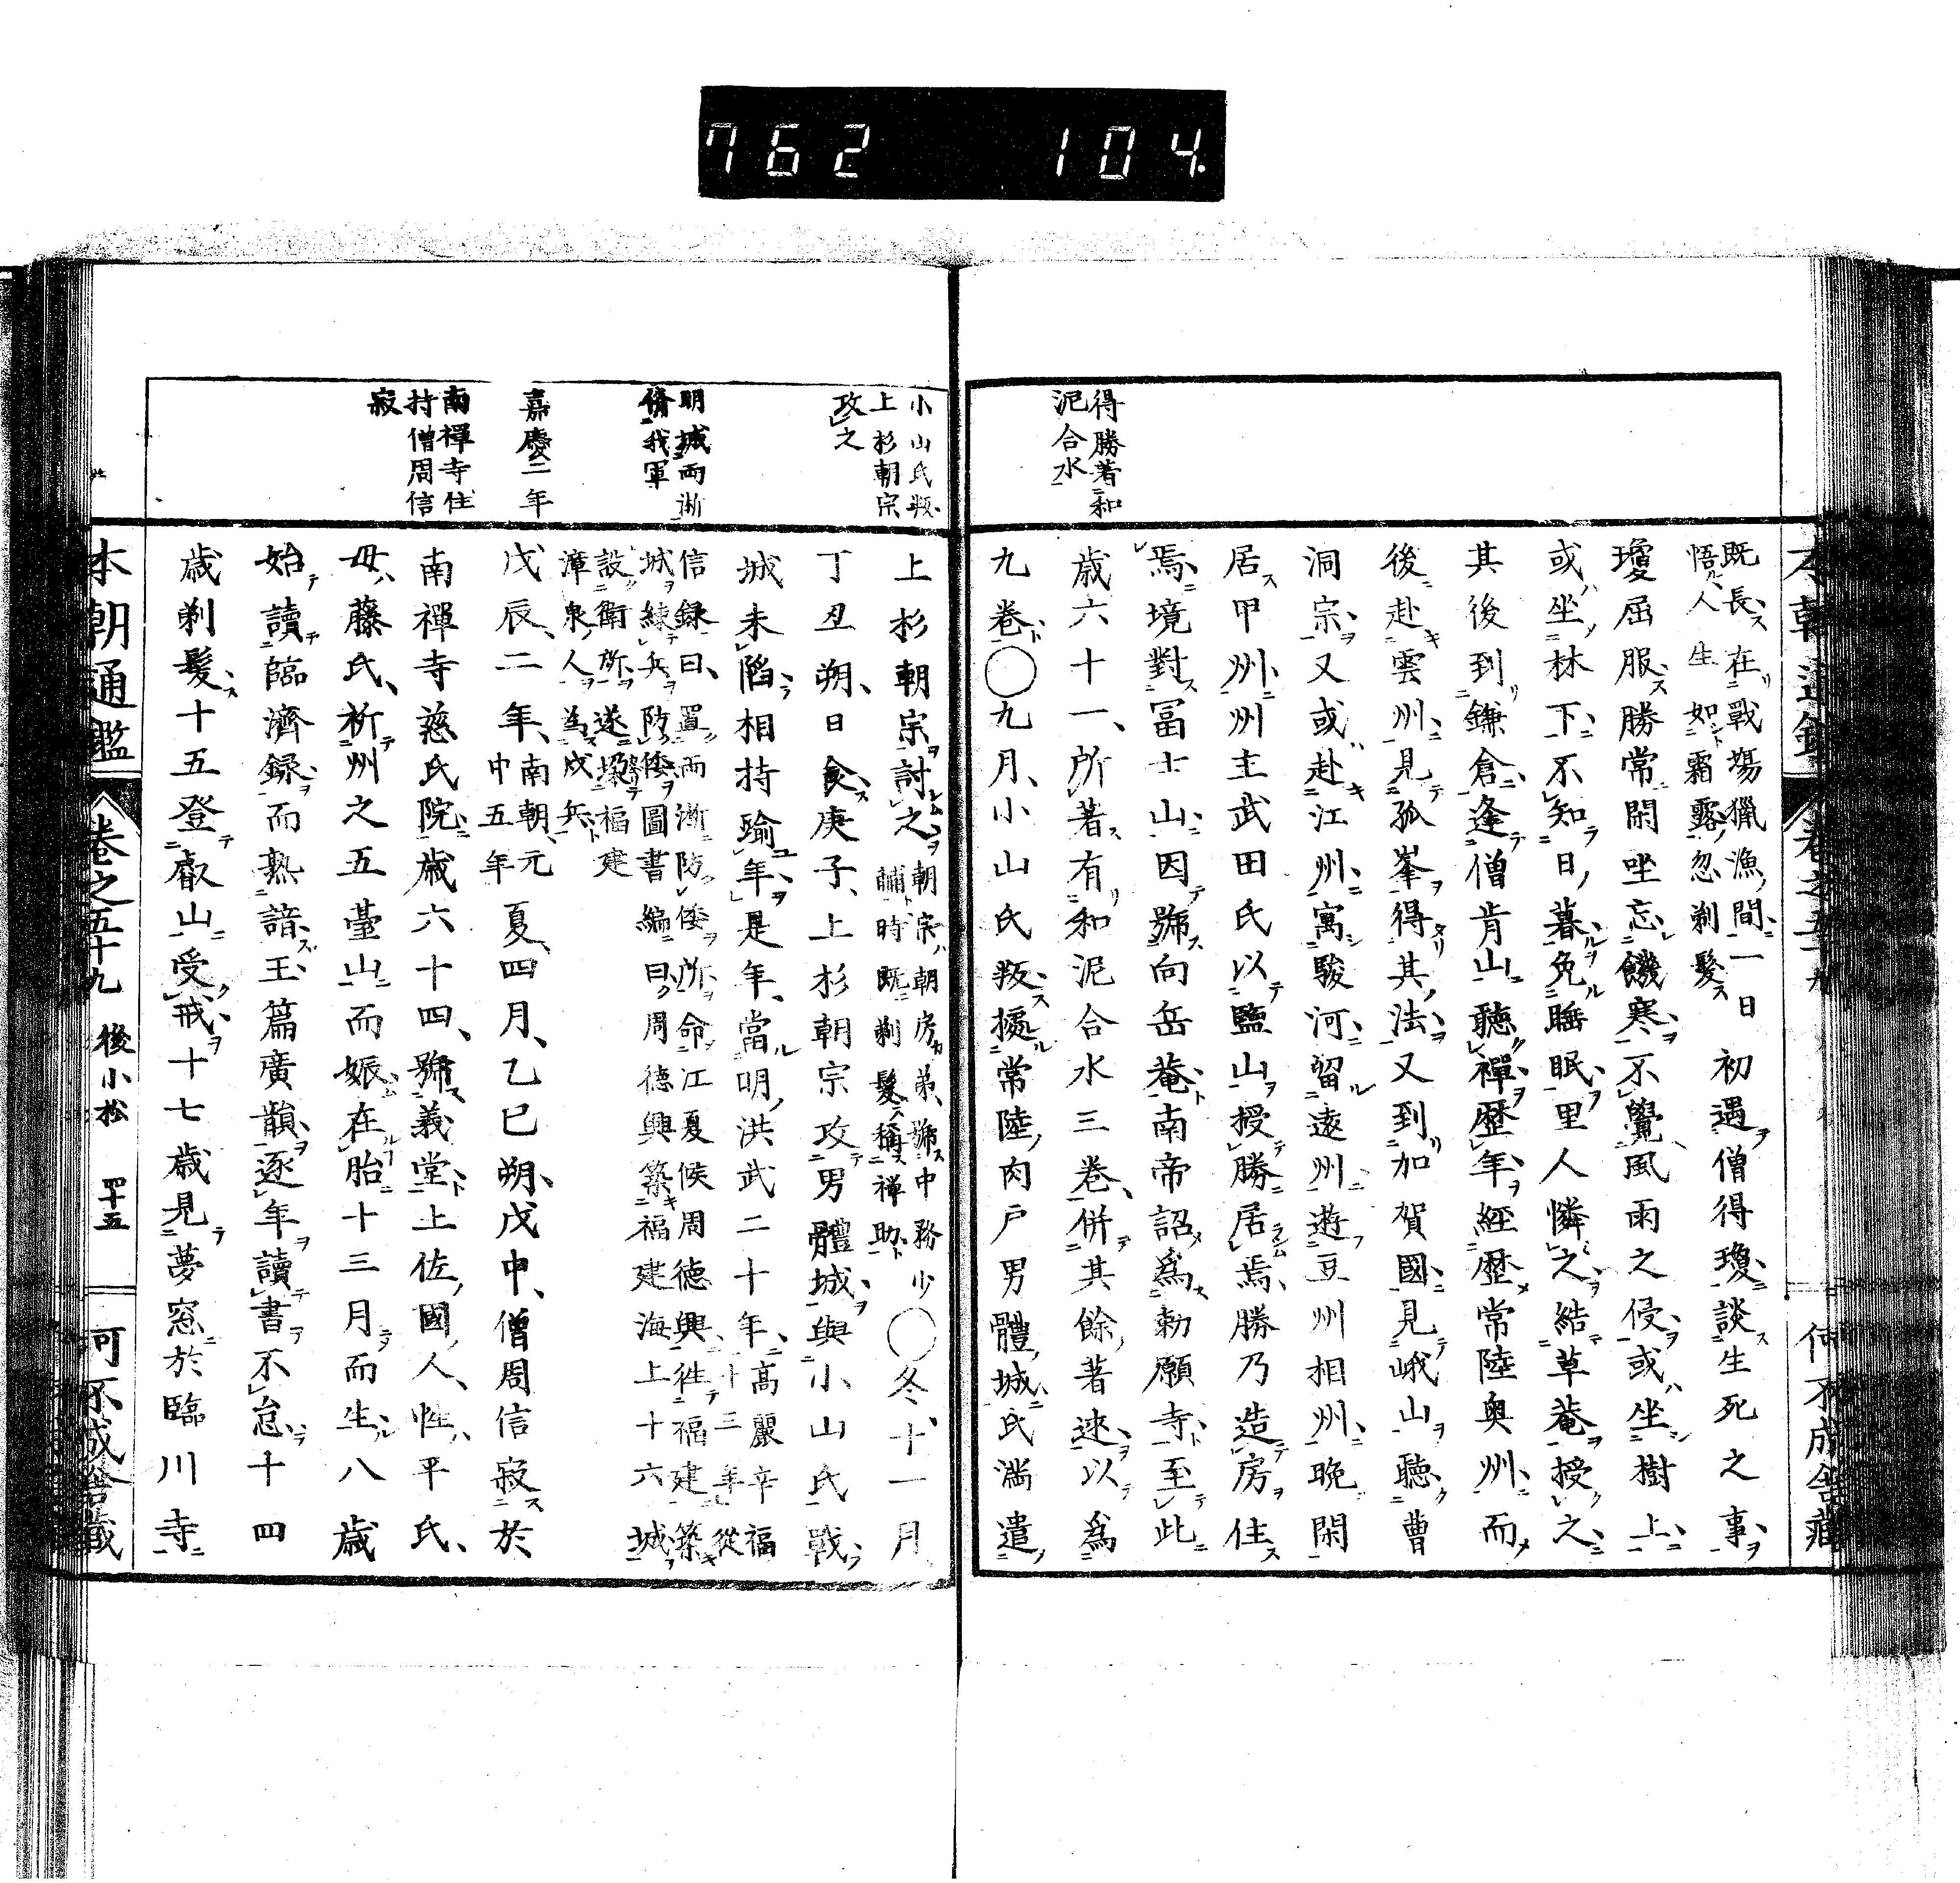 762 104
得勝著和
泥合水
既長在戰塲獵漁間一日
悟人生如霜露忽剃髮
初遇僧得瓊談生死之事
瓊屈服勝常閑坐忘饑寒不覺風雨之侵或坐樹上
或坐林下不知日暮免睡眠里人憐之結草菴授之
其後到鎌倉逢僧肯山聽禪歴年經歴常陸奥州而
後赴雲州見孤峯得其法又到加賀國見峨山聽曹
洞宗又或赴江州寓駿河留遠州遊豆州相州晩閑
居甲州州主武田氏以鹽山授勝居焉勝乃造房住
焉境對冨士山因號向岳菴南帝詔爲勅願寺至此
歳六十一所著有和泥合水三卷併其餘著述以爲
九卷〇九月小山氏叛據常陸肉戸男體城氏滿遣
小山氏叛
上杉朝宗
攻之
明城両淅
備我軍
嘉慶二年
南禪寺住
持僧周信
寂
上杉朝宗討之
朝宗朝房弟號中務少
輔時既剃髮稱禅助
〇冬十一月
丁丑朔日食庚子上杉朝宗攻男體城與小山氏戰
城未陷相持踰年是年當明洪武二十年
高麗辛
十三年
福
從
信録曰置両淅防倭所命江夏候周德興徃福建築
城練兵防倭圖書編曰周德興築福建海上十六城
設衛所遂福建
漳泉人為戍兵
戊辰二年
南朝元
中五年
夏四月乙巳朔戊申僧周信寂於
南禪寺慈氏院歳六十四號義堂土佐國人性平氏
母藤氏祈州之五臺山而娠在胎十三月而生八歳
始讀臨濟録而熟諳玉篇廣韻逐年讀書不怠十四
歳剃髮十五登叡山受戒十七歳見夢窓於臨川寺
本朝通鑑 卷之五十九 後小松 四十五
何不成舎藏